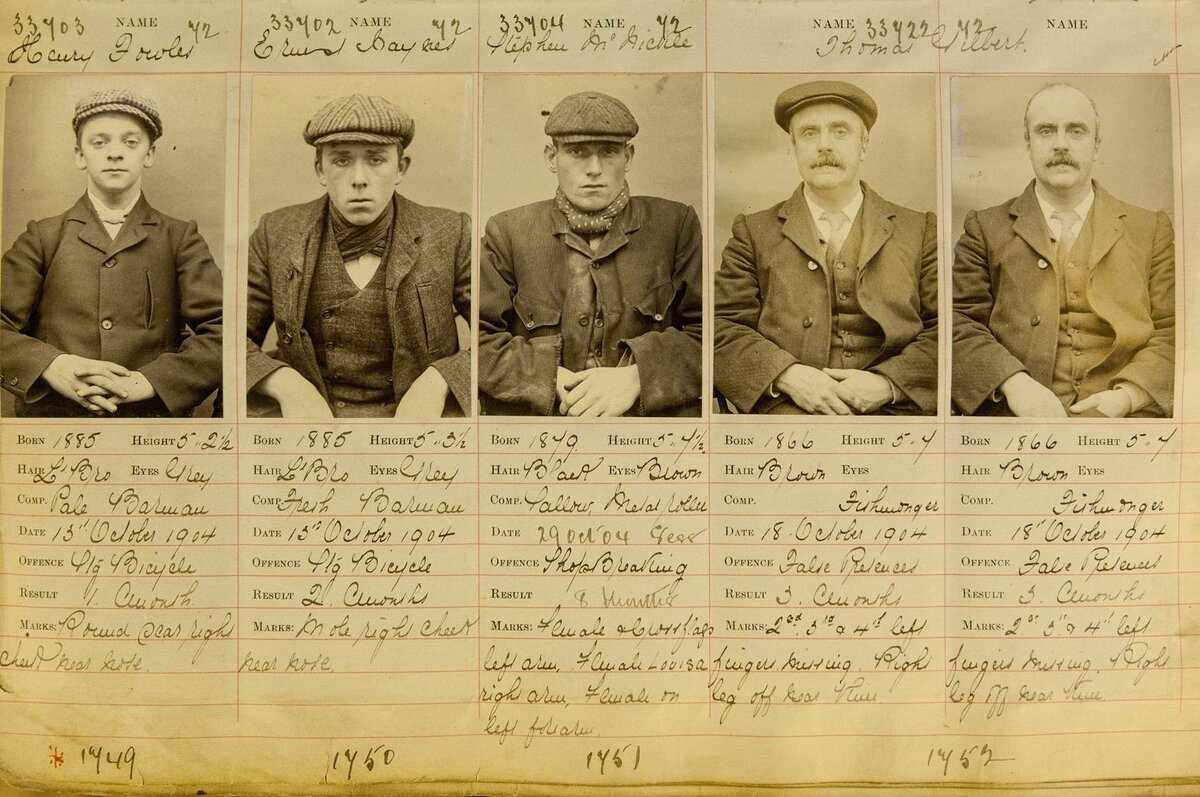 33703 NAME 72
Henry Fowles
33702 NAME 72
Ernest Haynes
33704 NAME 72
Stephen McNickle
NAME 33722 72
Thomas Gilbert.
NAME
BORN 1885 HEIGHT 5-2½
HAIR Lt Bro EYES Grey
COMP. Pale Barman
DATE 13th October 1904
OFFENCE Stg Bicycle
RESULT 1. Month
MARKS: Round Scar right
cheek near nose.
1749
BORN 1885 HEIGHT 5-3½
HAIR Lt Bro EYES Grey
COMP. Fresh Barman
DATE 13th October 1904
OFFENCE Stg Bicycle
RESULT 2. Months
MARKS: Mole right cheek
near nose,
1750
BORN 1879. HEIGHT 5-7½.
HAIR Black EYES Brown
COMP. Sallow, Metal roller
DATE 29 Oct 04 Sess
OFFENCE Shop Breaking
RESULT 8 months
MARKS: Female & Crossflags
left arm, Female Louisa
right arm, Female on
left forearm.
1751
BORN 1866 HEIGHT 5-7
HAIR Brown EYES
COMP. Fishmonger
DATE 18. October 1904
OFFENCE False Pretences
RESULT 3. Months
MARKS: 2nd, 3rd & 4th left
fingers missing. Right
leg off near Knee
BORN 1866 HEIGHT 5-7
HAIR Brown EYES
COMP. Fishmonger
DATE 18th October 1904
OFFENCE False Pretences
RESULT 3. Months
MARKS: 2nd 3rd & 4th left
fingers missing. Right
leg off near Knee.
1752